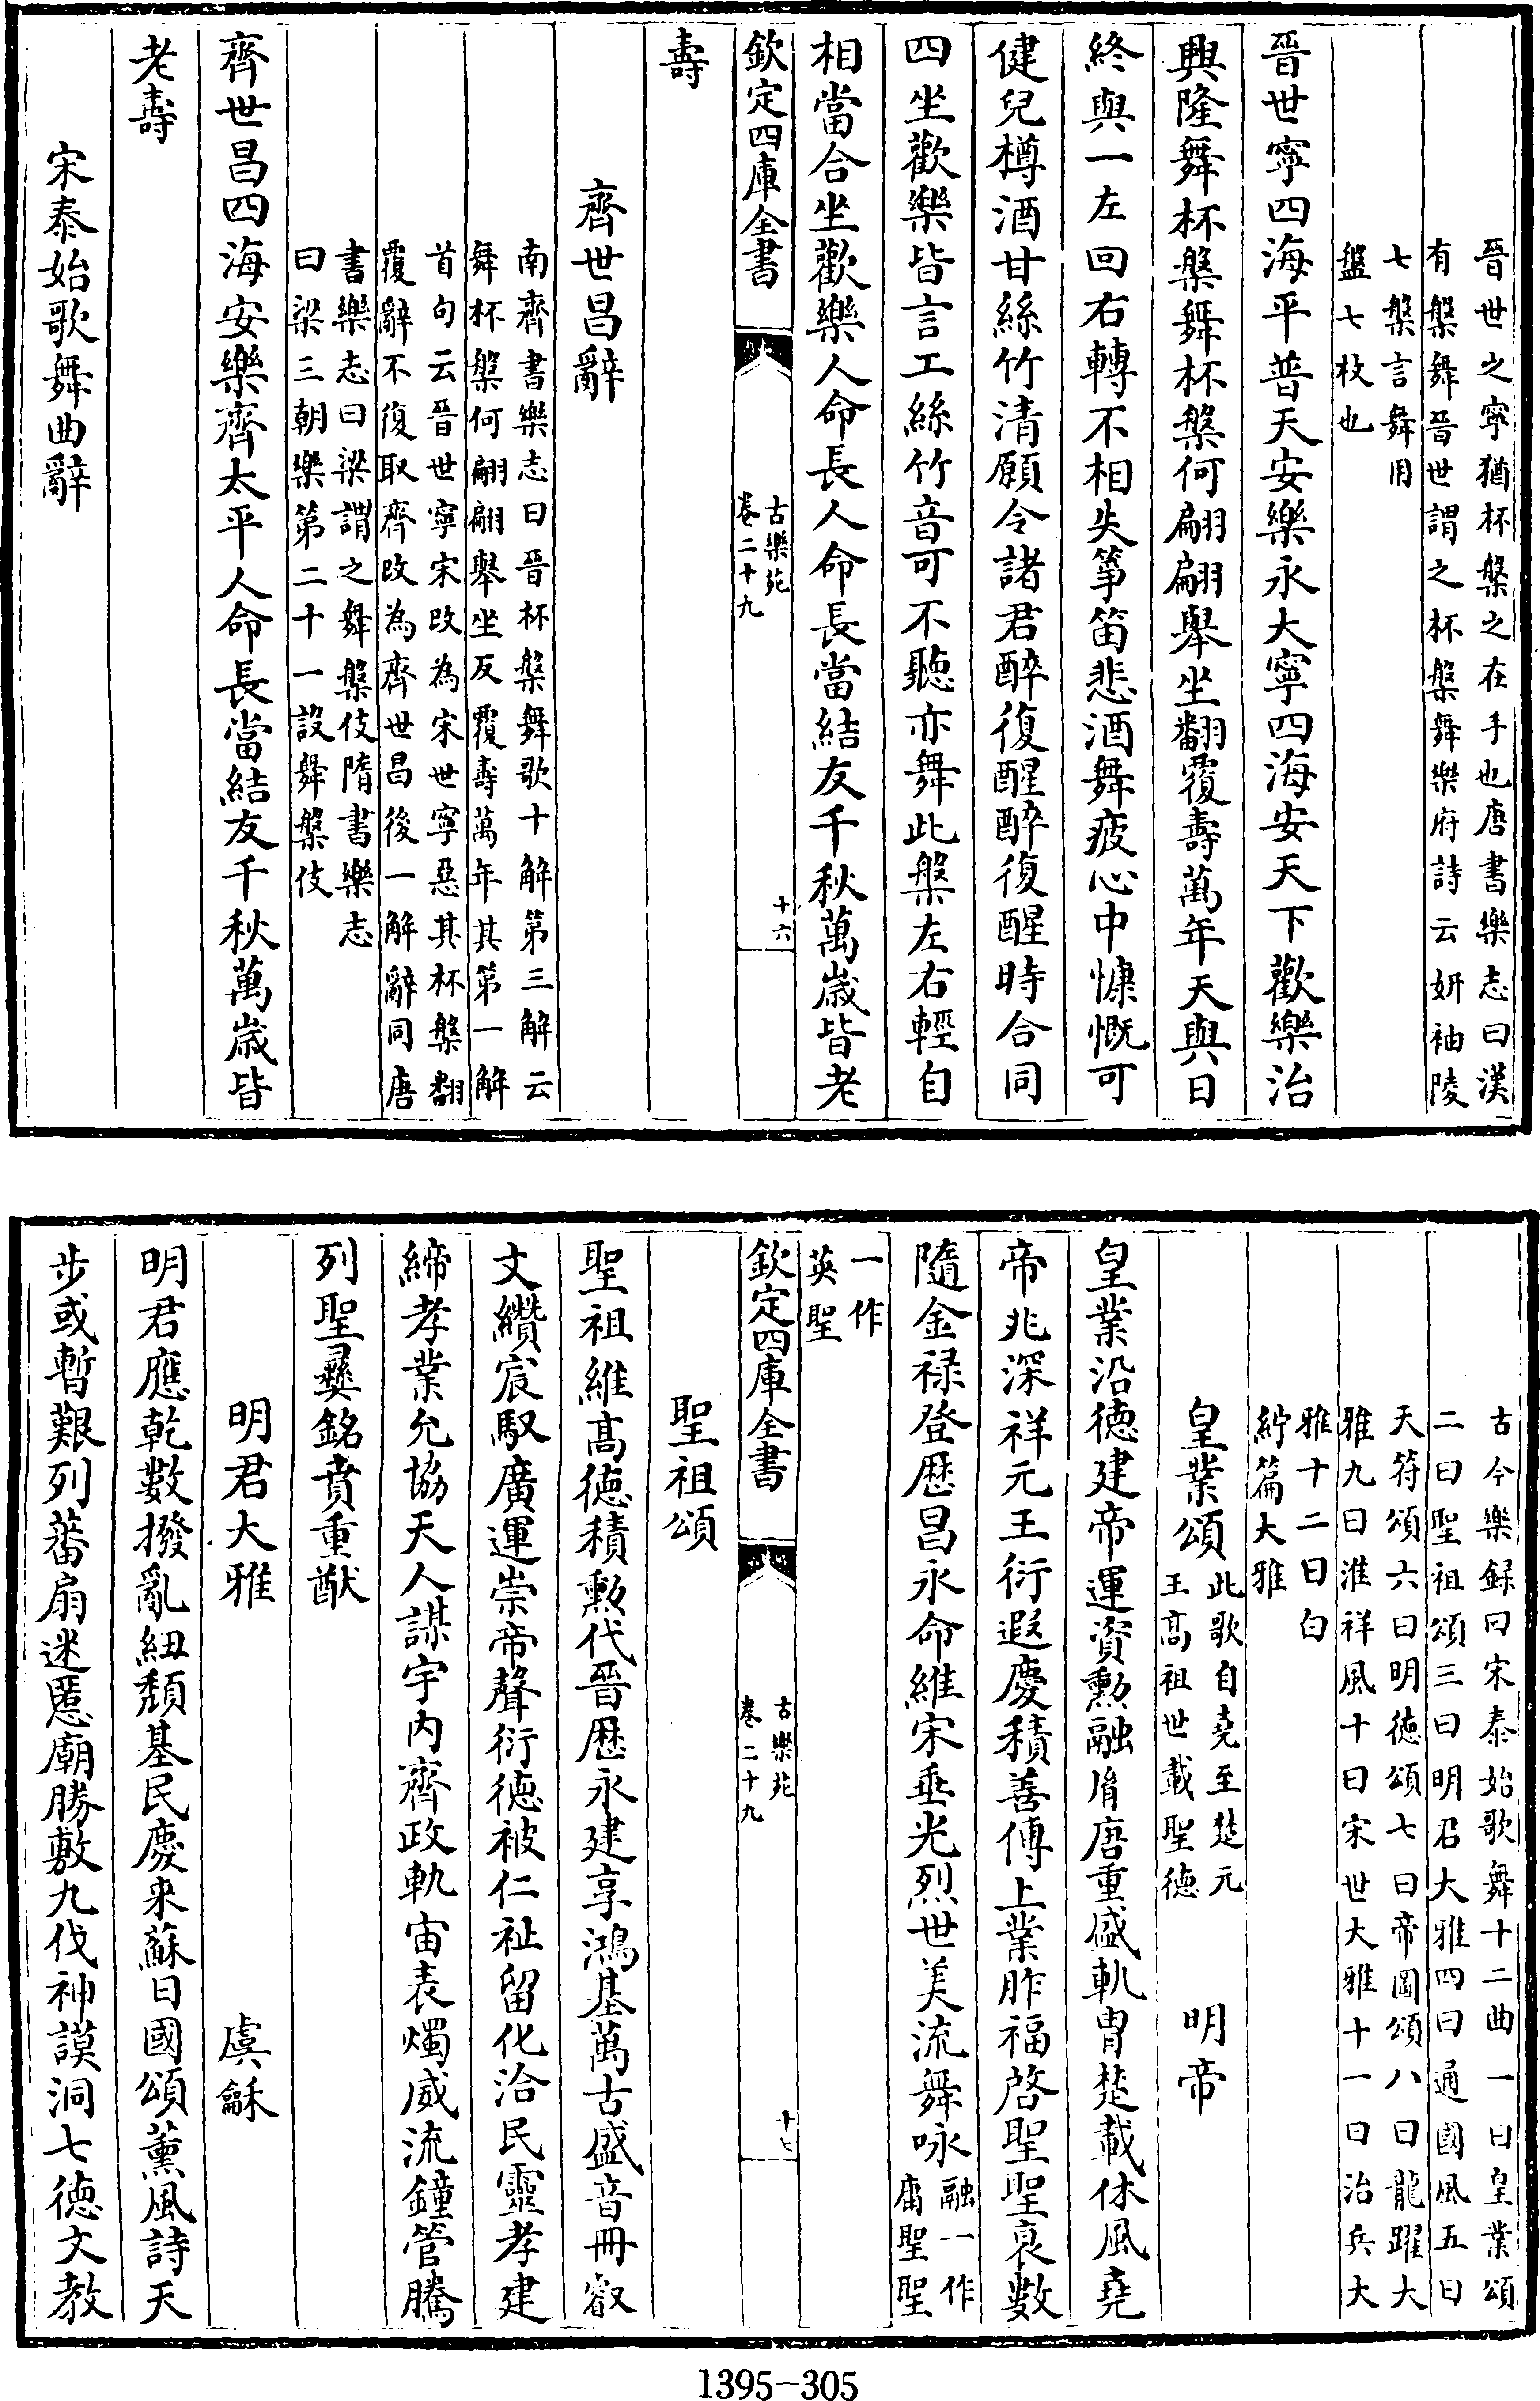 晉世之寧猶杯槃之在手也唐書樂志曰漢
有槃舞晉世謂之杯槃舞樂府詩云妍袖陵
七槃言舞用
盤七枚也
晉世寧四海平普天安樂永大寧四海安天下歡樂治
興隆舞杯槃舞杯槃何翩翩舉坐翻覆壽萬年天與日
終與一左回右轉不相失箏笛悲酒舞疲心中慷慨可
健兒樽酒甘絲竹清願令諸君醉復醒醉復醒時合同
四坐歡樂皆言工絲竹音可不聽亦舞此槃左右輕自
相當合坐歡樂人命長人命長當結友千秋萬歲皆老
欽定四庫全書
古樂苑
卷二十九
十六
壽
齊世昌辭
南齊書樂志曰晉杯槃舞歌十解第三解云
舞杯槃何翩翩舉坐反覆壽萬年其第一解
首句云晉世寧宋改為宋世寧惡其杯槃翻
覆辭不復取齊改為齊世昌後一解辭同唐
書樂志曰梁謂之舞槃伎隋書樂志
曰梁三朝樂第二十一設舞槃伎
齊世昌四海安樂齊太平人命長當結友千秋萬歲皆
老壽
宋泰始歌舞曲辭
古今樂録曰宋泰始歌舞十二曲一曰皇業頌
二曰聖祖頌三曰明君大雅四曰通國風五曰
天符頌六曰明德頌七曰帝圖頌八曰龍躍大
雅九曰淮祥風十曰宋世大雅十一曰治兵大
雅十二曰白
紵篇大雅
皇業頌
此歌自堯至楚元
王高祖世載聖德
明帝
皇業沿德建帝運資勲融胤唐重盛軌胄楚載休風堯
帝兆深祥元王衍遐慶積善傳上業胙福啓聖聖裒數
隨金禄登歷昌永命維宋垂光烈世美流舞咏
融一作
庸聖聖
一作
英聖
欽定四庫全書
古樂苑
卷二十九
十七
聖祖頌
聖祖維高德積勲代晉歷永建享鴻基萬古盛音冊叡
文纘宸馭廣運崇帝聲衍德被仁祉留化洽民靈孝建
締孝業允協天人謀宇内齊政軌宙表燭威流鐘管騰
列聖彞銘賁重猷
明君大雅
虞龢
明君應乾數撥亂紐頽基民慶来蘇日國頌薰風詩天
步或暫艱列蕃扇迷慝廟勝敷九伐神謨洞七德文教
1395-305